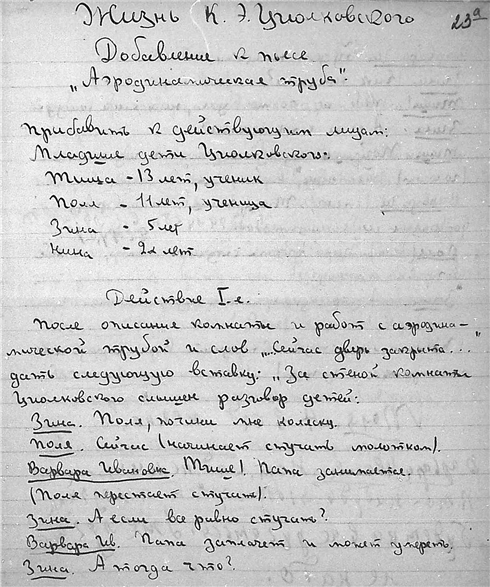 Жизнь К. Э. Циолковского 23а
Добавление к пьесе
„Аэродинамическая труба“.
Прибавить к действующим лицам:
Младшие дети Циолковского:
Тища – 13 лет, ученик
Поля – 11 лет, ученица
Зина – 5 лет
Нина – 2х лет
Действие I-е.
После описание комнаты и работ с аэродина-
мической трубой и слов „...Сейчас дверь закрыта...“
дать следующую вставку: „За стеной комнаты
Циолковского слышен разговор детей:
Зина. Поля, почини мне коляску.
Поля. Сейчас (начинает стучать молотком).
Варвара Ивановна. Тише! Папа занимается.
(Поля перестает стучать).
Зина. А если все равно стучать?
Варвара Ив. Папа заплачет и может умереть.
Зина. А тогда что?